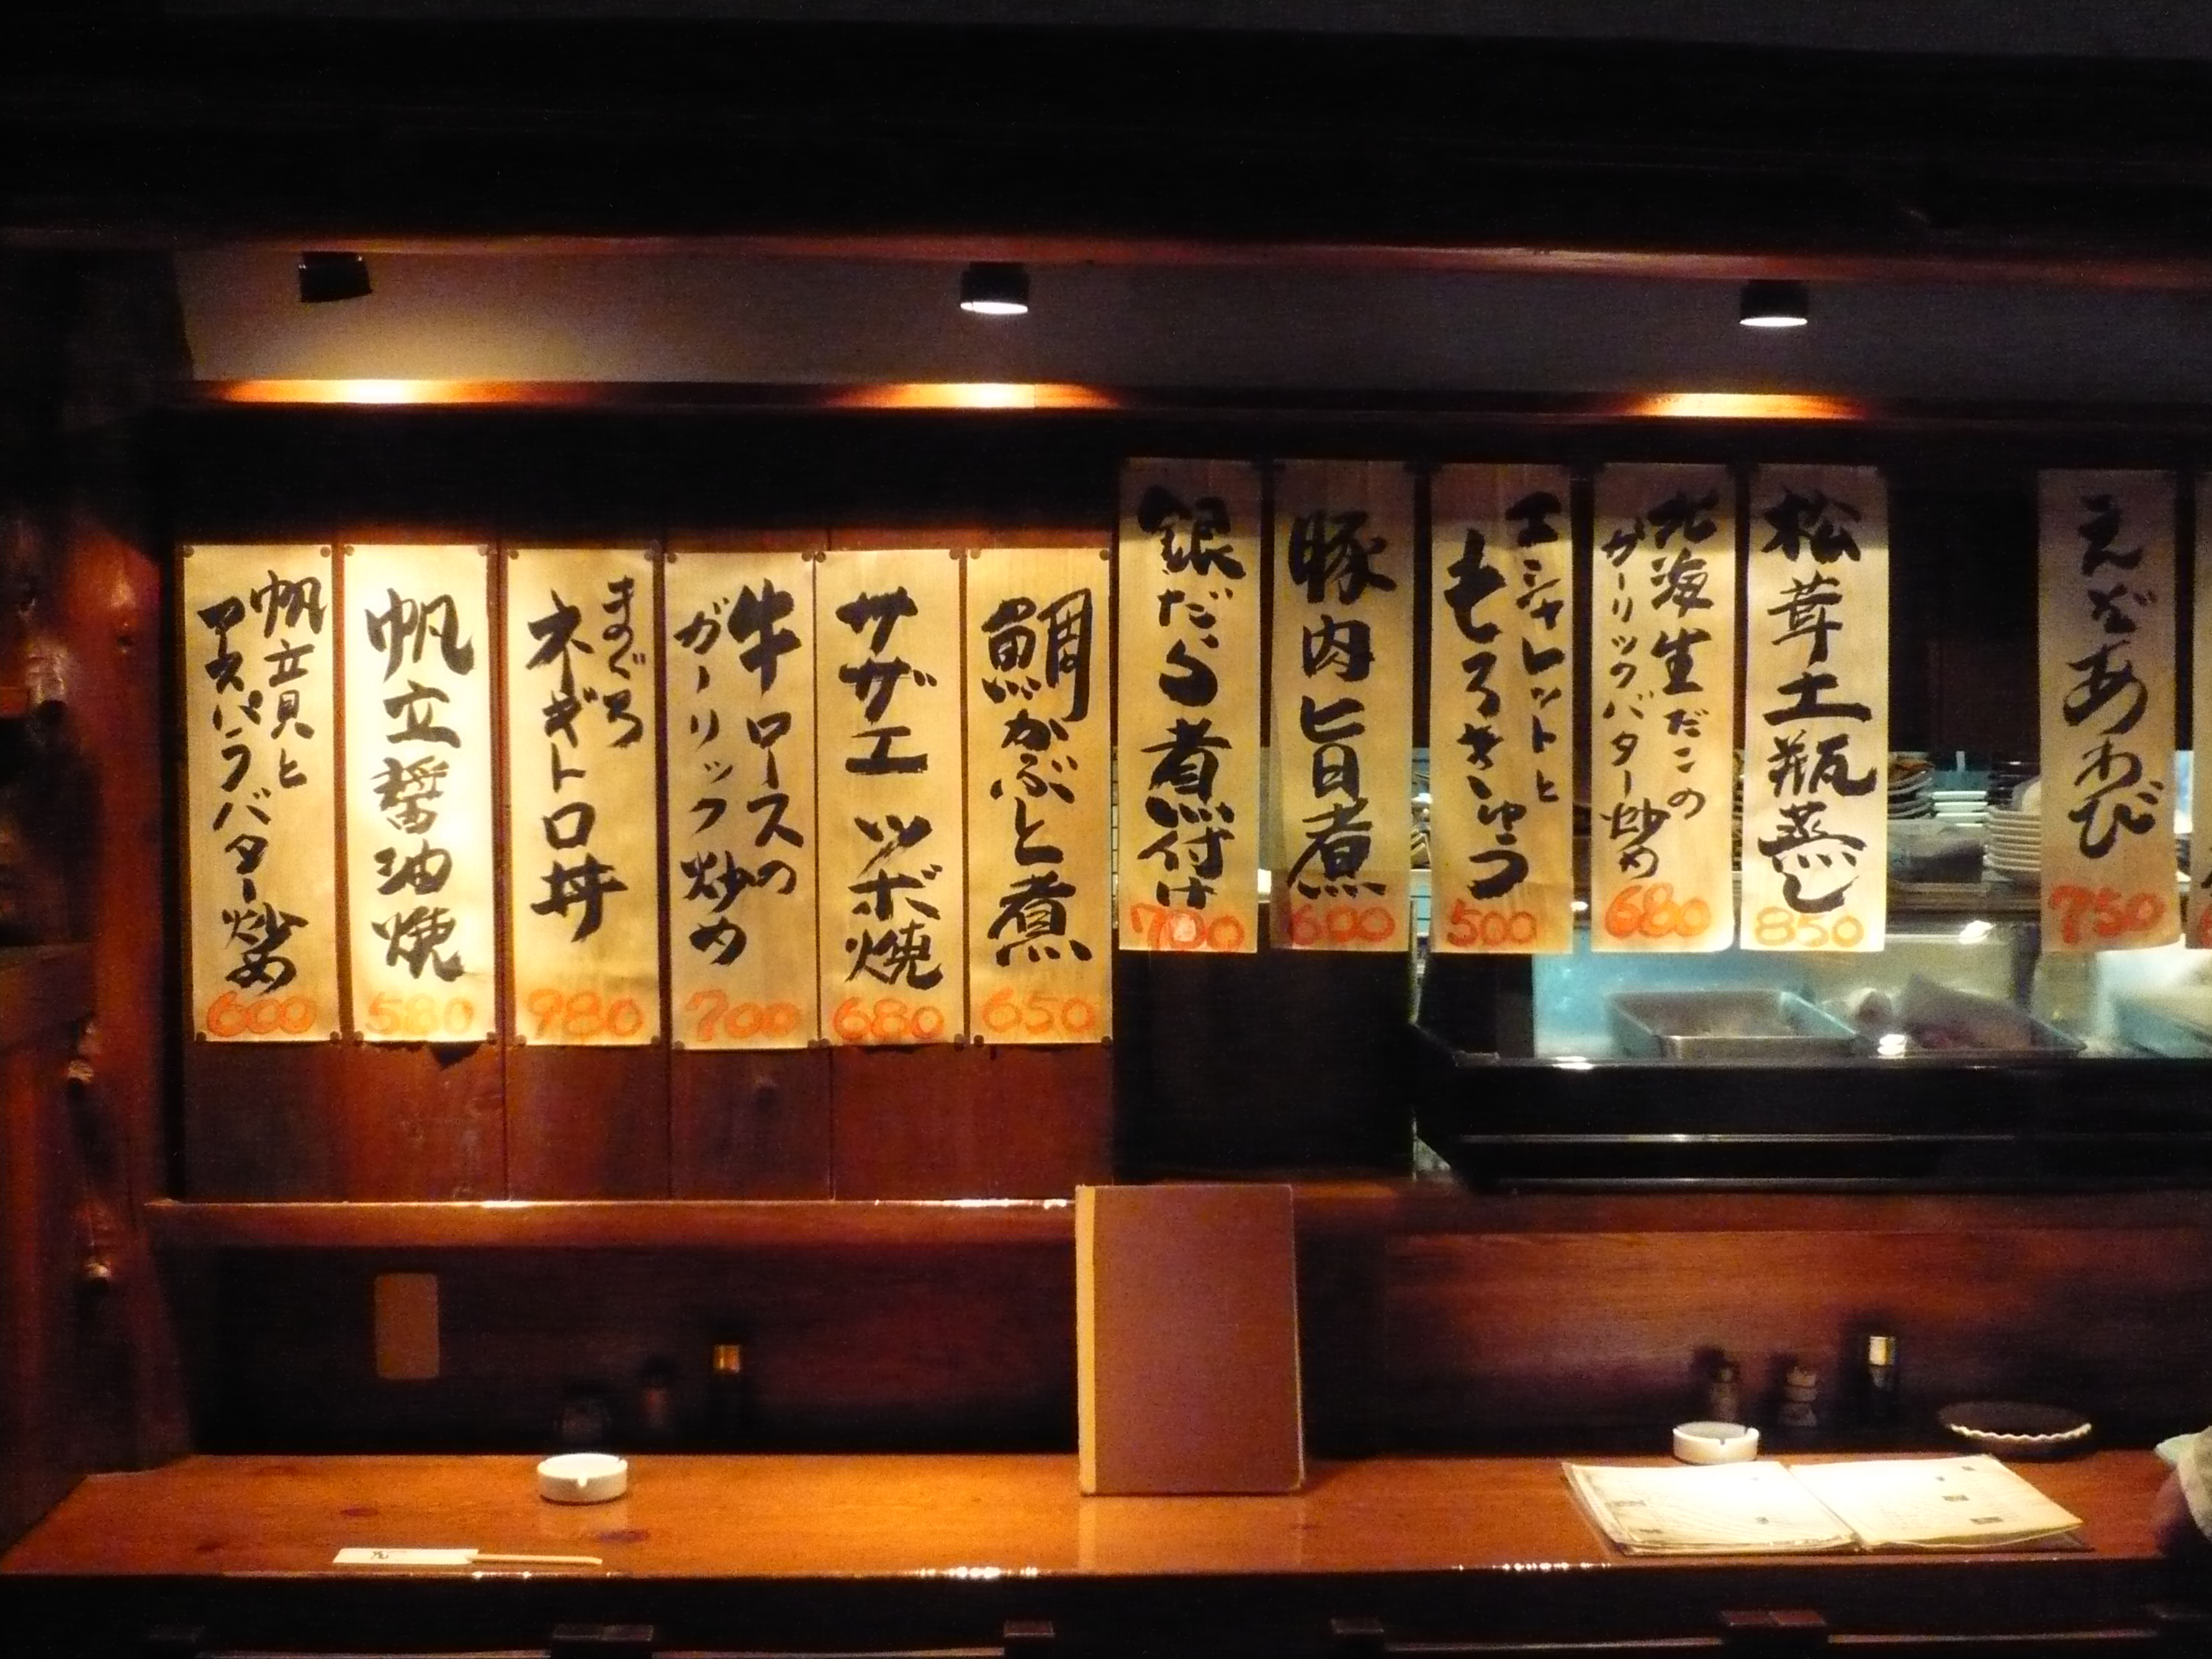 帆立貝と
アスパラバター炒め
600
帆立醤油焼
580
まぐろ
ネギトロ丼
980
牛ロースの
ガーリック炒め
700
サザエツボ焼
680
鯛かぶと煮
650
銀だら煮付け
700
豚肉旨煮
600
エシャレットと
もろきゅう
500
北海生だこの
ガーリックバター炒め
680
松茸土瓶蒸し
850
えぞあわび
750